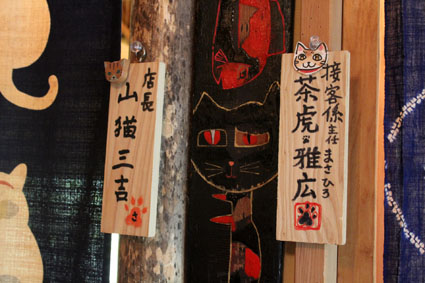 接客係主任 まさひろ
茶虎雅広
店長
山猫三吉